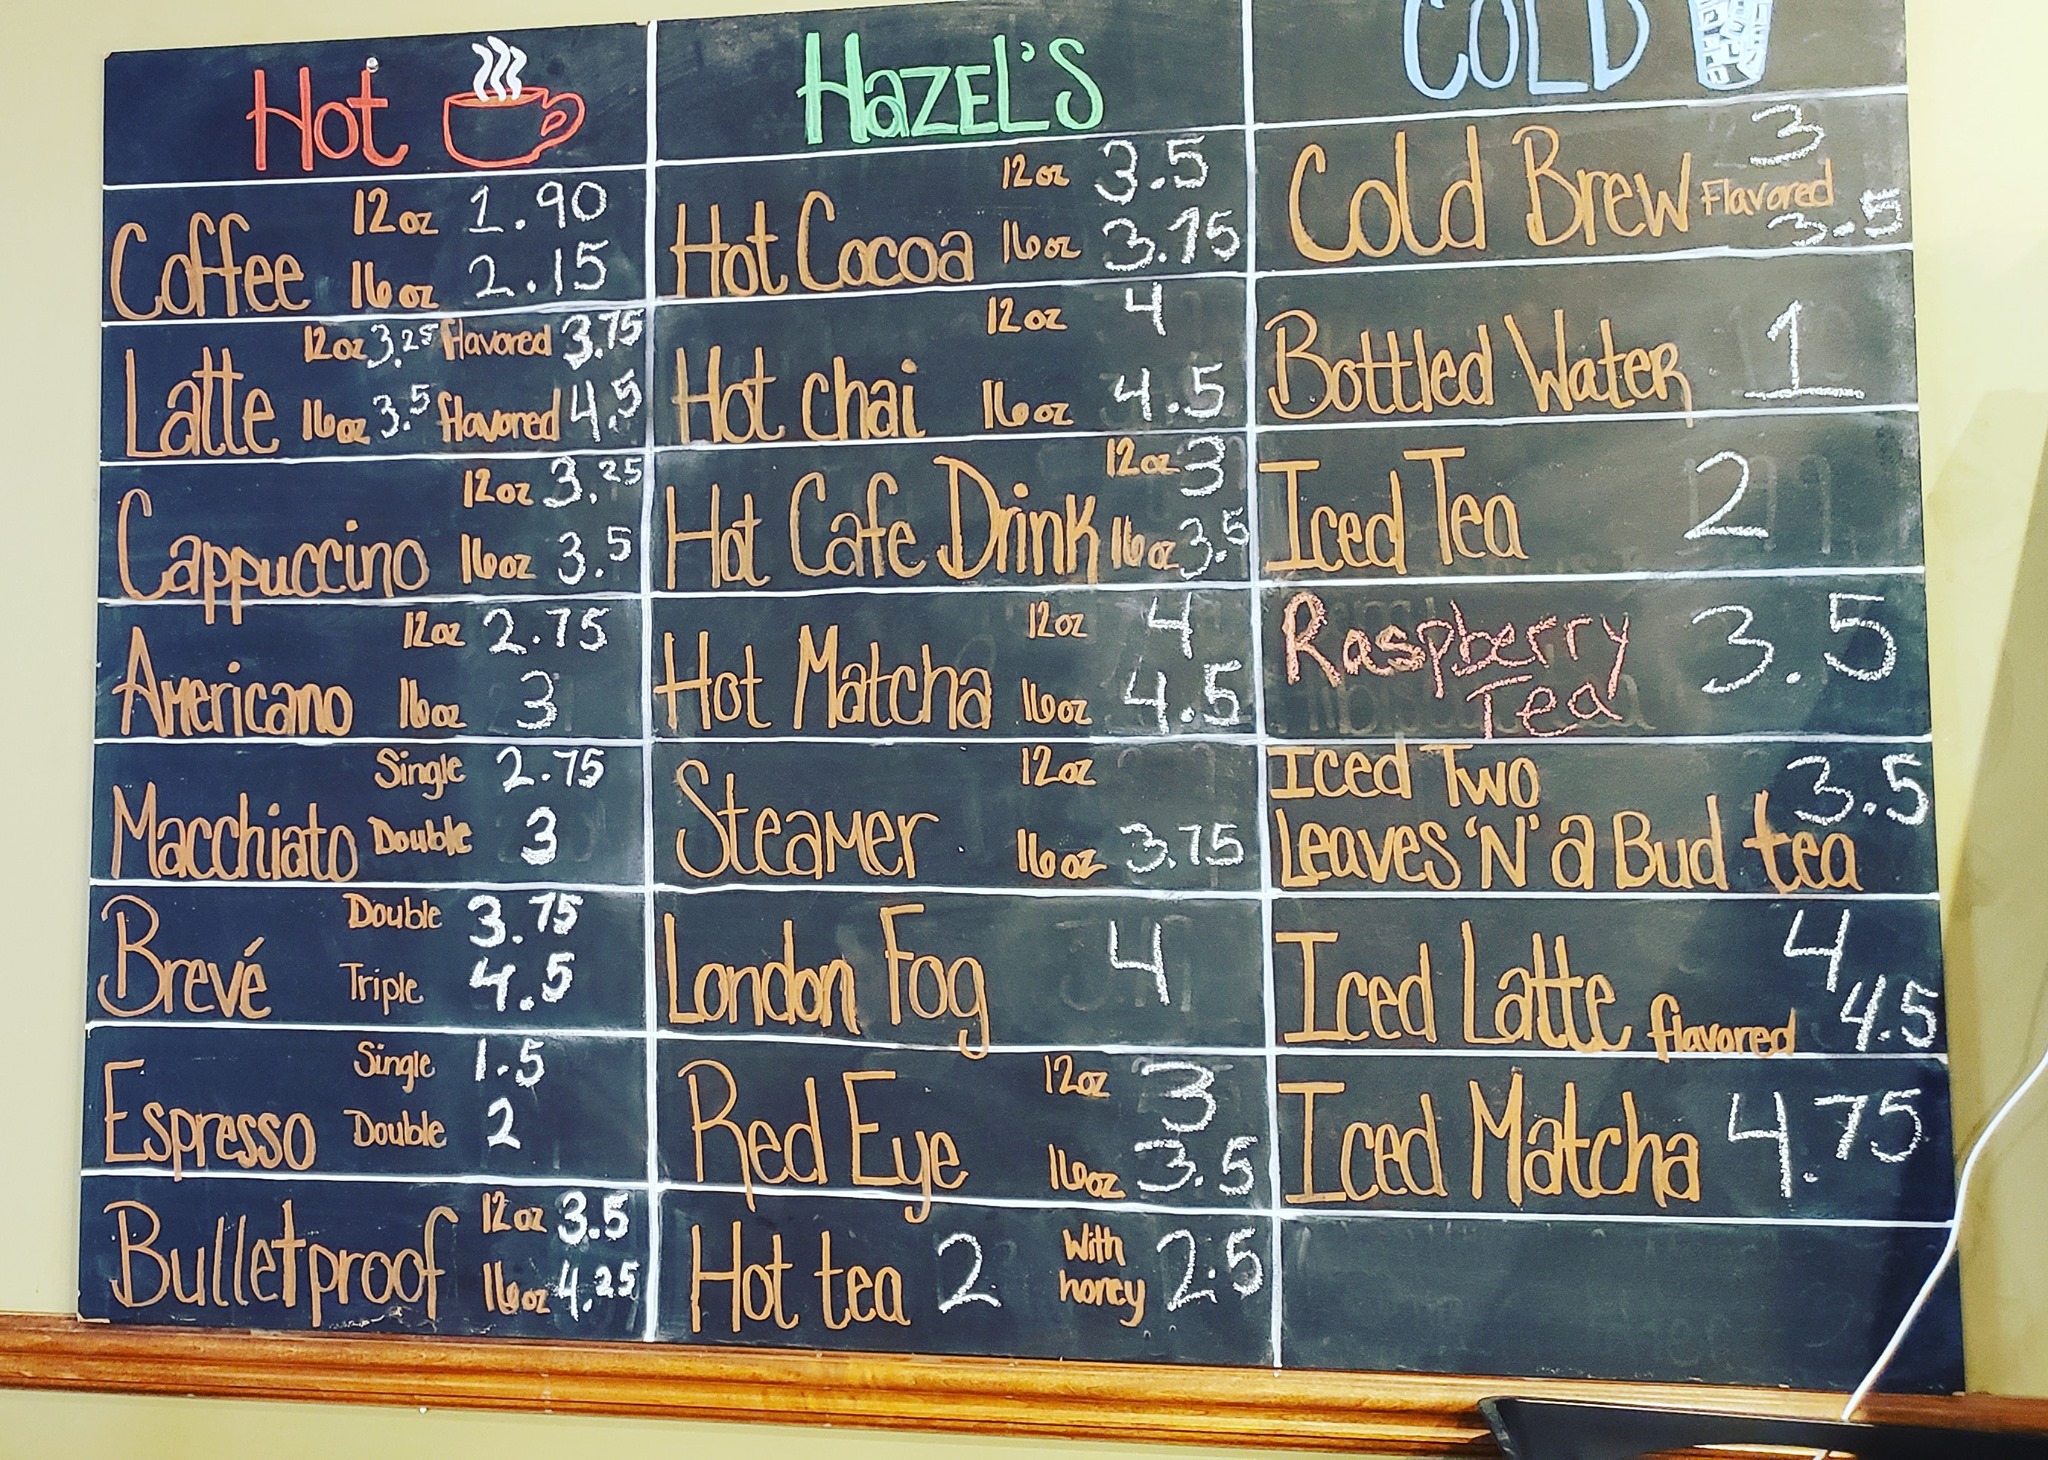 Hot
Coffee 12oz 1.90
16oz 2.15
Latte 12oz 3.25 flavored 3.75
16oz 3.5 flavored 4.5
Cappuccino 12oz 3.25
16oz 3.5
Americano 12oz 2.75
16oz 3
Macchiato Single 2.75
Double 3
Brevé Double 3.75
Triple 4.5
Espresso Single 1.5
Double 2
Bulletproof 12oz 3.5
16oz 4.25
HAZEL'S
Hot Cocoa 12oz 3.5
16oz 3.75
Hot chai 12oz 4
16oz 4.5
Hot Cafe Drink 12oz 3
16oz 3.5
Hot Matcha 12oz 4
16oz 4.5
Steamer 12oz
16oz 3.75
London Fog 4
Red Eye 12oz 3
16oz 3.5
Hot tea 2 With honey 2.5
COLD
Cold Brew 3
Flavored 3.5
Bottled Water 1
Iced Tea 2
Raspberry 3.5
Tea
Iced Two 3.5
Leaves 'N' a Bud tea
Iced Latte 4
flavored 4.5
Iced Matcha 4.75